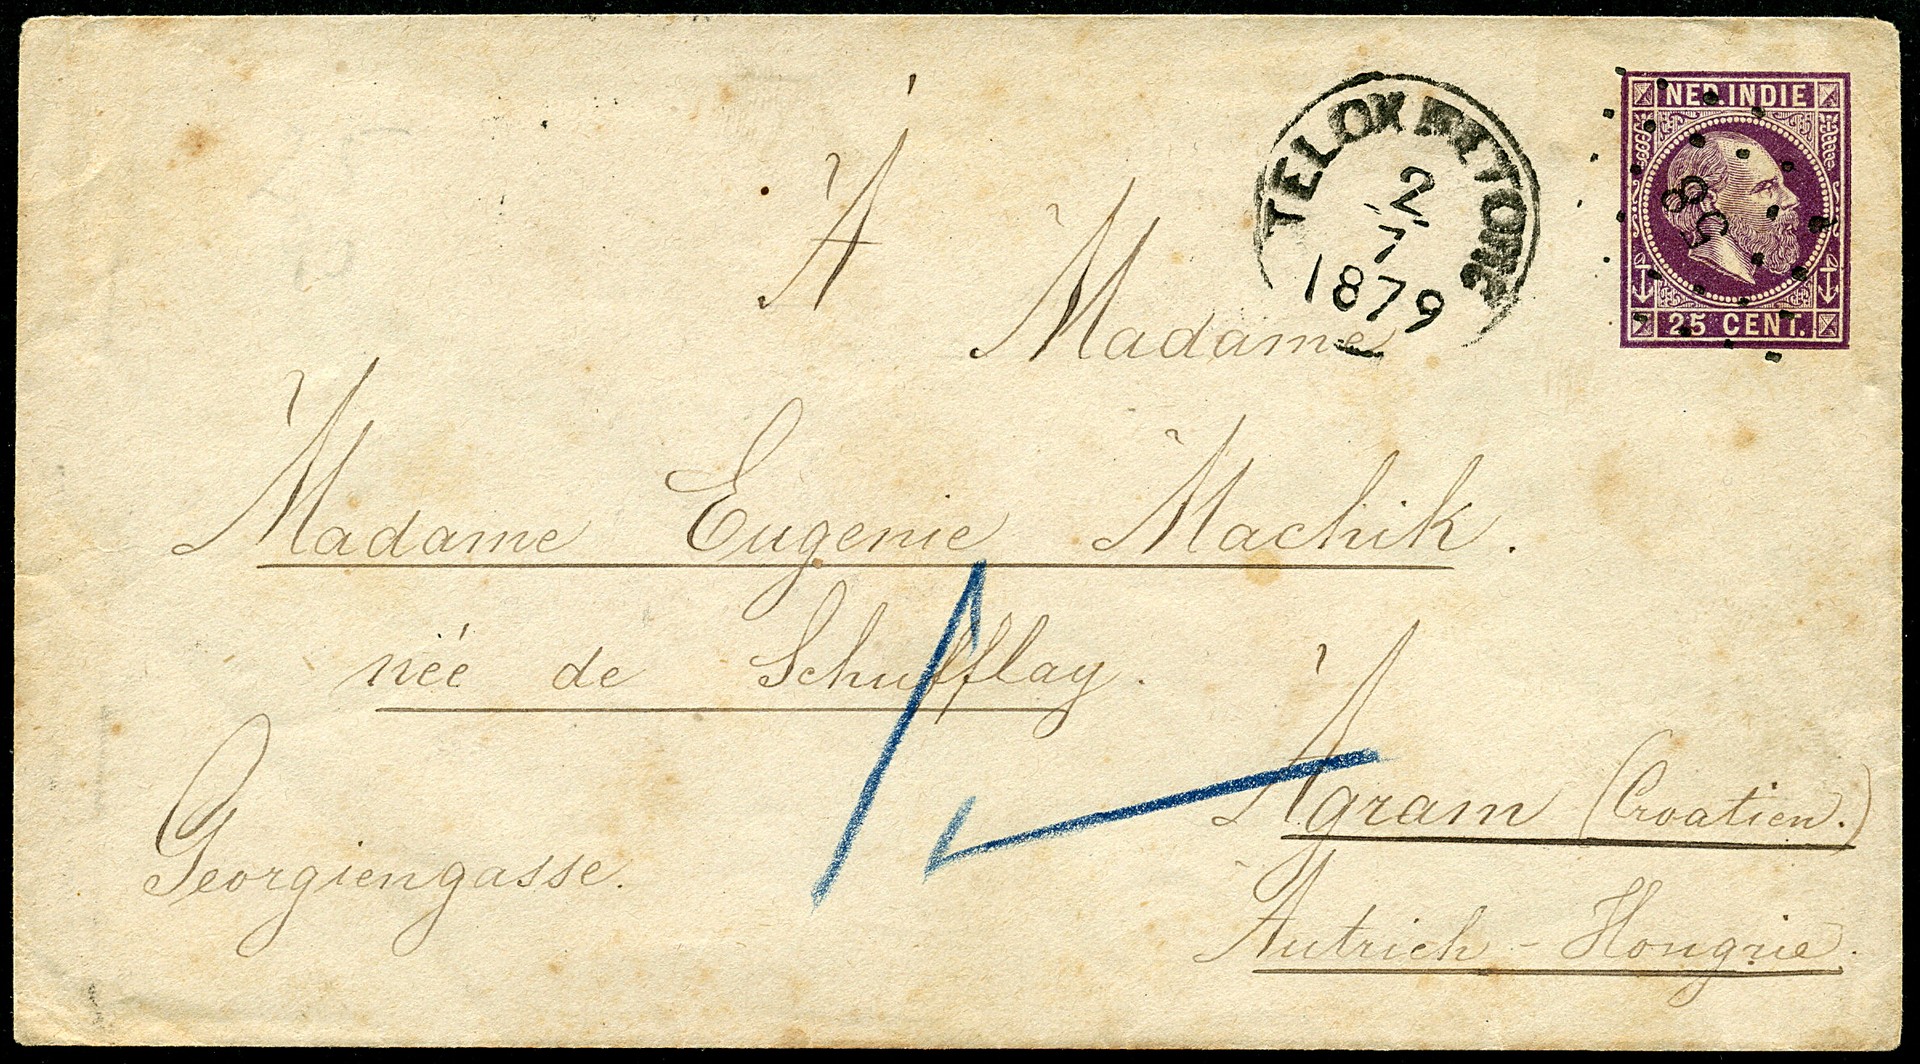 NED. INDIE
58
25 CENT.
TELOK BETONG
2
7
1879
À
Madame
Madame Eugenie Machik.
née de Schufflay.
Georgiengasse.
Agram (Croatien.)
Autrich - Hongrie.